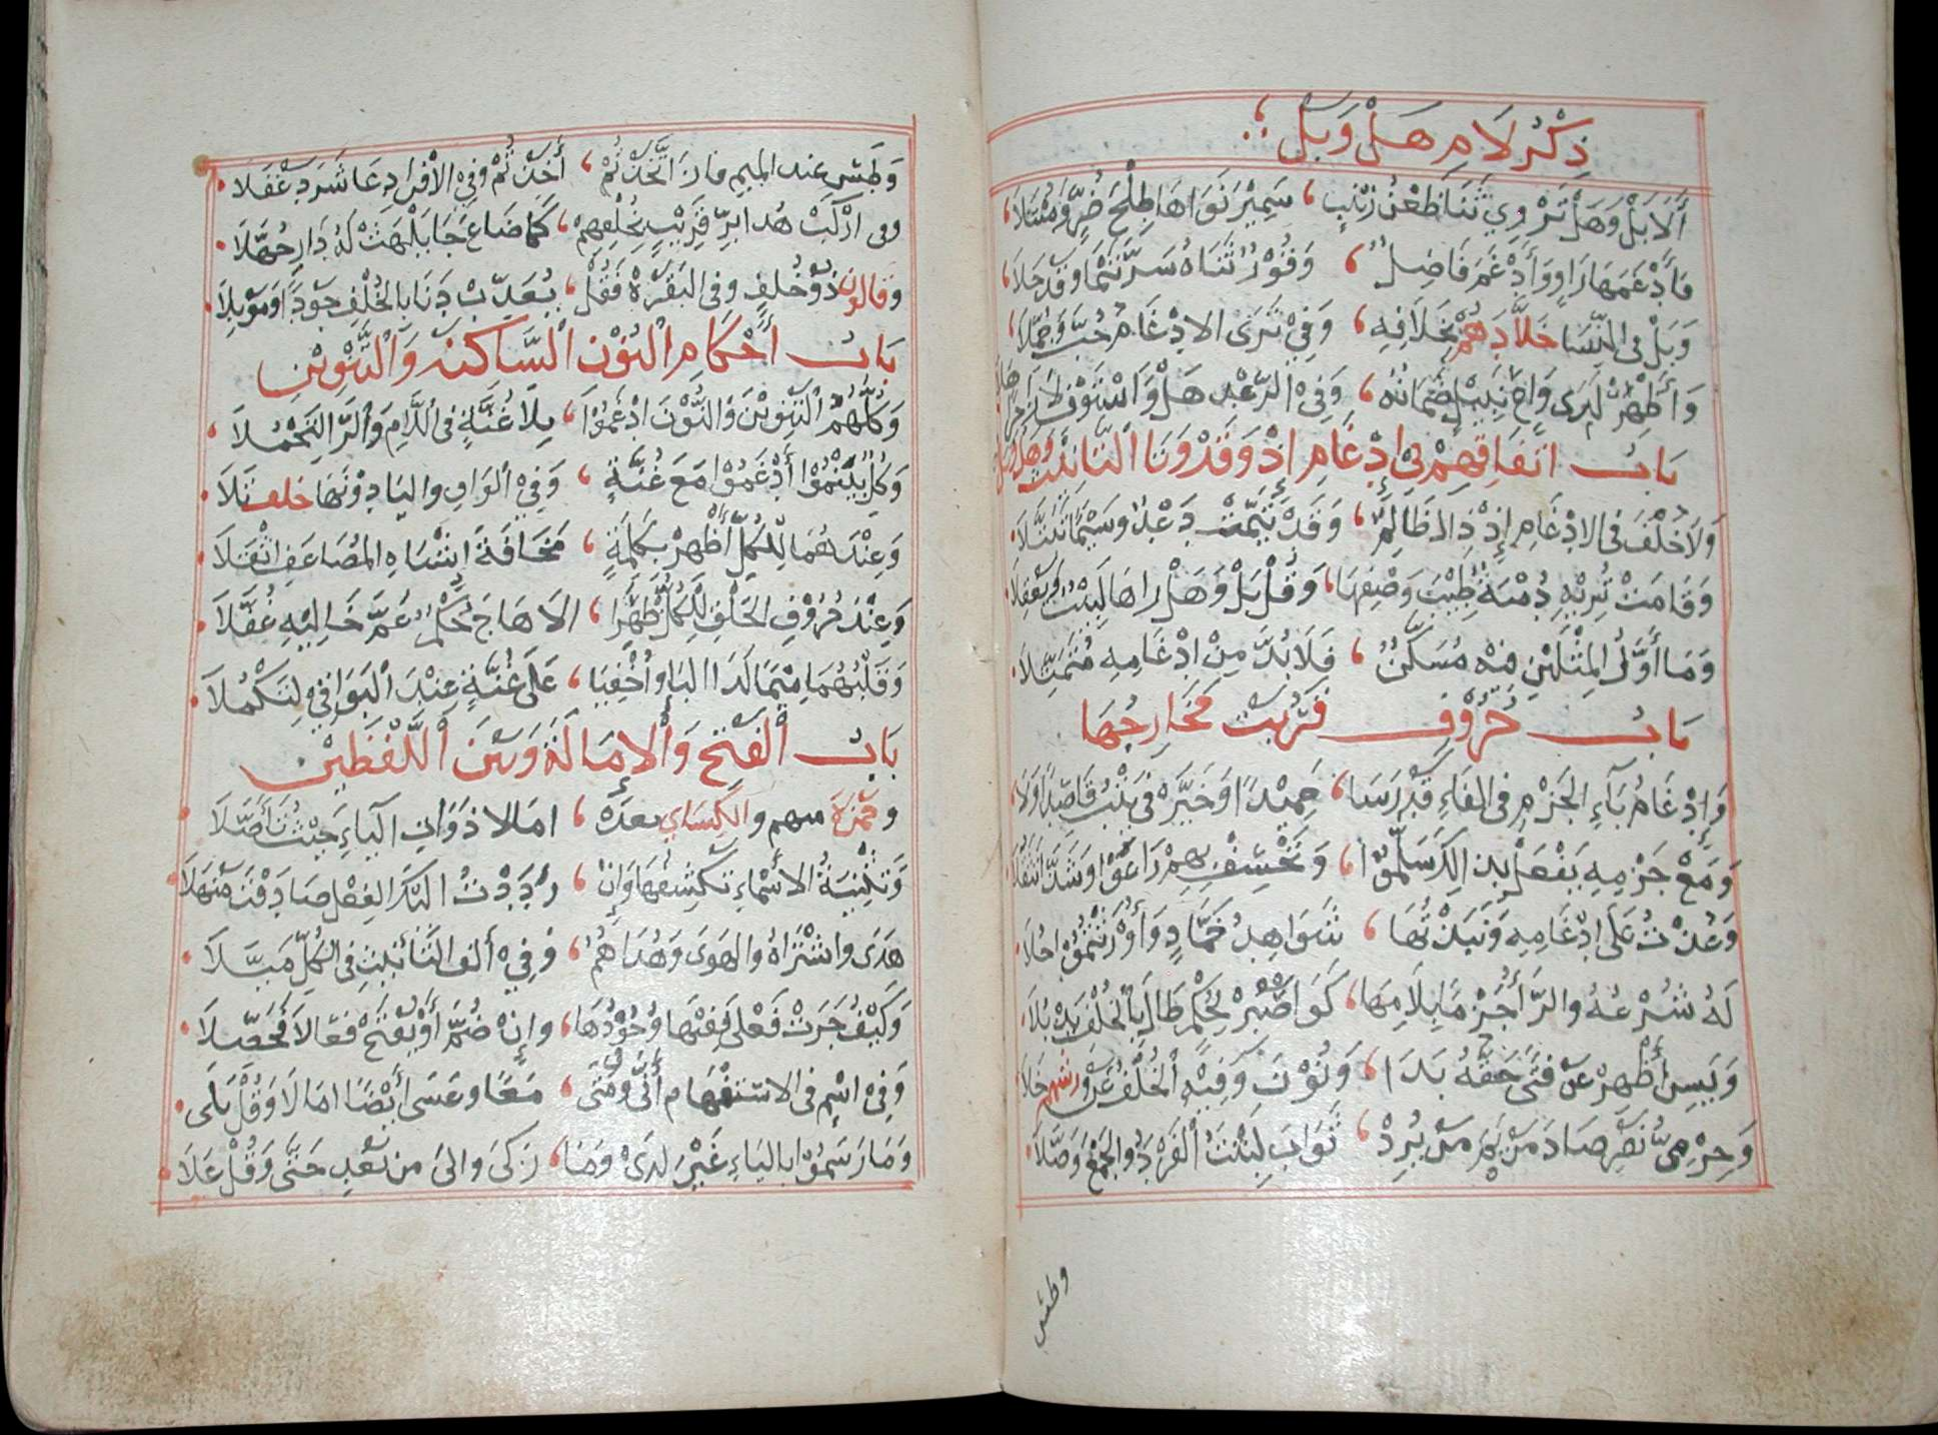 ذِكْرُ لَامِ هَلْ وَبَلْ
أَلَا بَلْ وَهَلْ تَرْوِي ثَنَا ظَعْنِ زَيْنَبٍ ، سَمِيْرَ نَوَاهَا طِلْحَ ضُرٍّ وَمُبْتَلَا ،
فَأَدْغَمَهَا رَاوٍ وَأَدْغَمَ فَاضِلٌ ، وَقُوْرٌ ثَنَاهُ سَرَّ تَيْمًا وَقَدْ حَلَا ،
وَبَلْ فِي النِّسَا خَلَّادُهُمْ بِخِلَافِهِ ، وَفِيْ هَلْ تَرَى الادْغَامُ حُبَّ وَحُمِّلَا ،
وَأَظْهِرْ لَدَى وَاعٍ نَبِيْلٍ ضَمَانُهُ ، وَفِي الرَّعْدِ هَلْ وَاسْتَوْفِ لَا زَاجِرًا هَلَا
بَابُ اتفَاقِهِمْ فِي إِدْغَامِ إِذْ وَقَدْ وَتَا التَّانِيْثِ وَهَلْ وَبَلْ
وَلَا خُلْفَ فِي الادْغَامِ إِذْ ذَلَّ ظَالِمٌ ، وَقَدْ تَيَّمَتْ دَعْدٌ وَسِيْمًا تَبَتَّلَا
وَقَامَتْ تُرِيْهِ دُمْيَةٌ طِيْبَ وَصْفِهَا ، وَقُلْ بَلْ وَهَلْ رَاهَا لَبِيْبٌ وَيَعْقِلَا
وَمَا أَوَّلُ المِثْلَيْنِ فِيْهِ مُسَكَّنٌ ، فَلَابُدَّ مِنْ ادْغَامِهِ مُتَمَثِّلَا
بَابُ حُرُوْفٍ قَرُبَتْ مَخَارِجُهَا
وَإِدْغَامُ بَآءِ الجَزْمِ فِي الفَاءِ قَدْ رَسَا ، حَمِيْدًا وَخَيِّرْ فِيْ يَتُبْ قَاصِدًا وَلَا
وَمَعْ جَزْمِهِ يَفْعَلْ بِذَلِكَ سَلَّمُوْا ، وَنَخْسِفْ بِهِمْ رَاعَوْا وَشَذَّا تَثَقُّلَا
وَعُذْتُ عَلَى ادْغَامِهِ وَنَبَذْتُهَا ، شَوَاهِدُ حَمَّادٍ وَأُوْرِثْتُمُوْا حَلَا
لَهُ شَرْعُهُ وَالرَّاءُ جَزْمًا بِلَامِهَا ، كَوَاصْبِرْ لِحُكْمِ طَالَ بِالخُلْفِ يَذْبُلَا
وَيَسِ أَظْهِرْ عَنْ فَتًى حَقُّهُ بَدَا ، وَنُوْنَ وَفِيْهِ الْخُلْفُ عَنْ وَرْشِهِمْ خَلَا
وَحِرْمِيُّ نَصْرٍ صَادَ مَرْيَمَ مَنْ يُرِدْ ، ثَوَابَ لَبِثْتَ الْفَرْدَ وَالجَمْعَ وَصَّلَا
وطس
وَطَسِ عِنْدَ المِيمِ فَازَ اتَّخَذْتُمْ ، أَخَذْتُمْ وَفِيْ الافْرَادِ عَاشَرَ دَغْفَلَا
وفى ارْكَبْ هُدَا بَرٍّ قَرِيْبٍ بِخُلْفِهِمْ ، كَمَا ضَاعَ جَا يَلْهَثْ لَهُ دَارِ جُهَّلَا
وقالون ذُوْ خُلْفٍ وَفِي البَقَرَهْ فَقُلْ ، يُعَذِّبْ دَنَا بِالخُلْفِ جَوْدًا وَمُوْبِلَا
بَابُ أَحْكَامِ الْنُوْنِ السَّاكِنَةِ وَالتَّنْوِيْنِ
وَكُلُّهُمُ التَّنْوِيْنَ وَالنُّوْنَ ادْغَمُوْا ، بِلَا غُنَّةٍ فِي اللَّامِ وَالرَّا لِيَجْمُلَا
وَكُلٌّ بِيَنْمُوْ أَدْغَمُوْا مَعَ غُنَّةٍ ، وَفِيْ الْوَاوِ وَاليَا دُوْنَهَا خلف تَلَا
وَعِنْدَهُمَا لِلْكُلِّ أَظْهِرْ بِكِلْمَةٍ ، مَخَافَةَ اشْبَاهِ المُضَاعَفِ اثْقَلَا
وَعِنْدَ حُرُوْفِ الحَلْقِ لِلْكُلِّ أُظْهِرَا ، الَا هَاجَ حُكْمٌ عَمَّ خَالِيْهِ غُفَّلَا
وَقَلْبُهُمَا مِيْمًا لَدَا البَا وَأُخْفِيَا ، عَلَى غُنَّةٍ عِنْدَ الْبَوَاقِيْ لِتَكْمُلَا
بَابُ الْفَتْحِ وَالْإِمَالَةِ وَبَيْنَ اللَّفْظَيْنِ
وحَمْزَةُ منهم والْكِسَاىِ بعدَهُ ، امَالا ذَوَاتِ الْيَاءِ حَيْثُ تَأَصَّلَا
وَتَثْنِيَةُ الأَسْمَاءِ تَكْشِفُهَا وَإِنْ ، رَدَدْتَ الَيْكَ الفِعْلَ صَادَفْتَ مَنْهَلَا
هَدَى وَاشْتَرَاهُ وَالهَوَى وَهُدَاهُمُ ، وَفِيْ أَلِفِ التَّانِيْثِ فِي الْكُلِّ مَيَّلَا
وَكَيْفَ جَرَتْ فَعْلَى فَفِيْهَا وُجُوْدُهَا ، وَإِنْ ضُمَّ أَوْ يُفْتَحْ فَعَالَا فَحَصِّلَا
وَفِيْ اسْمٍ فِي الاسْتِفْهَامِ أَنَّى وَمَتَى ، مَعًا وَعَسَى أَيْضًا امَالَا وَقُلْ بَلَى
وَمَا رَسَمُوْا بِاليَاءِ غَيْرَ لَدَى وَمَا ، زَكَى وَالَى مِنْ بَعْدِ حَتَّى وَقُلْ عَلَا